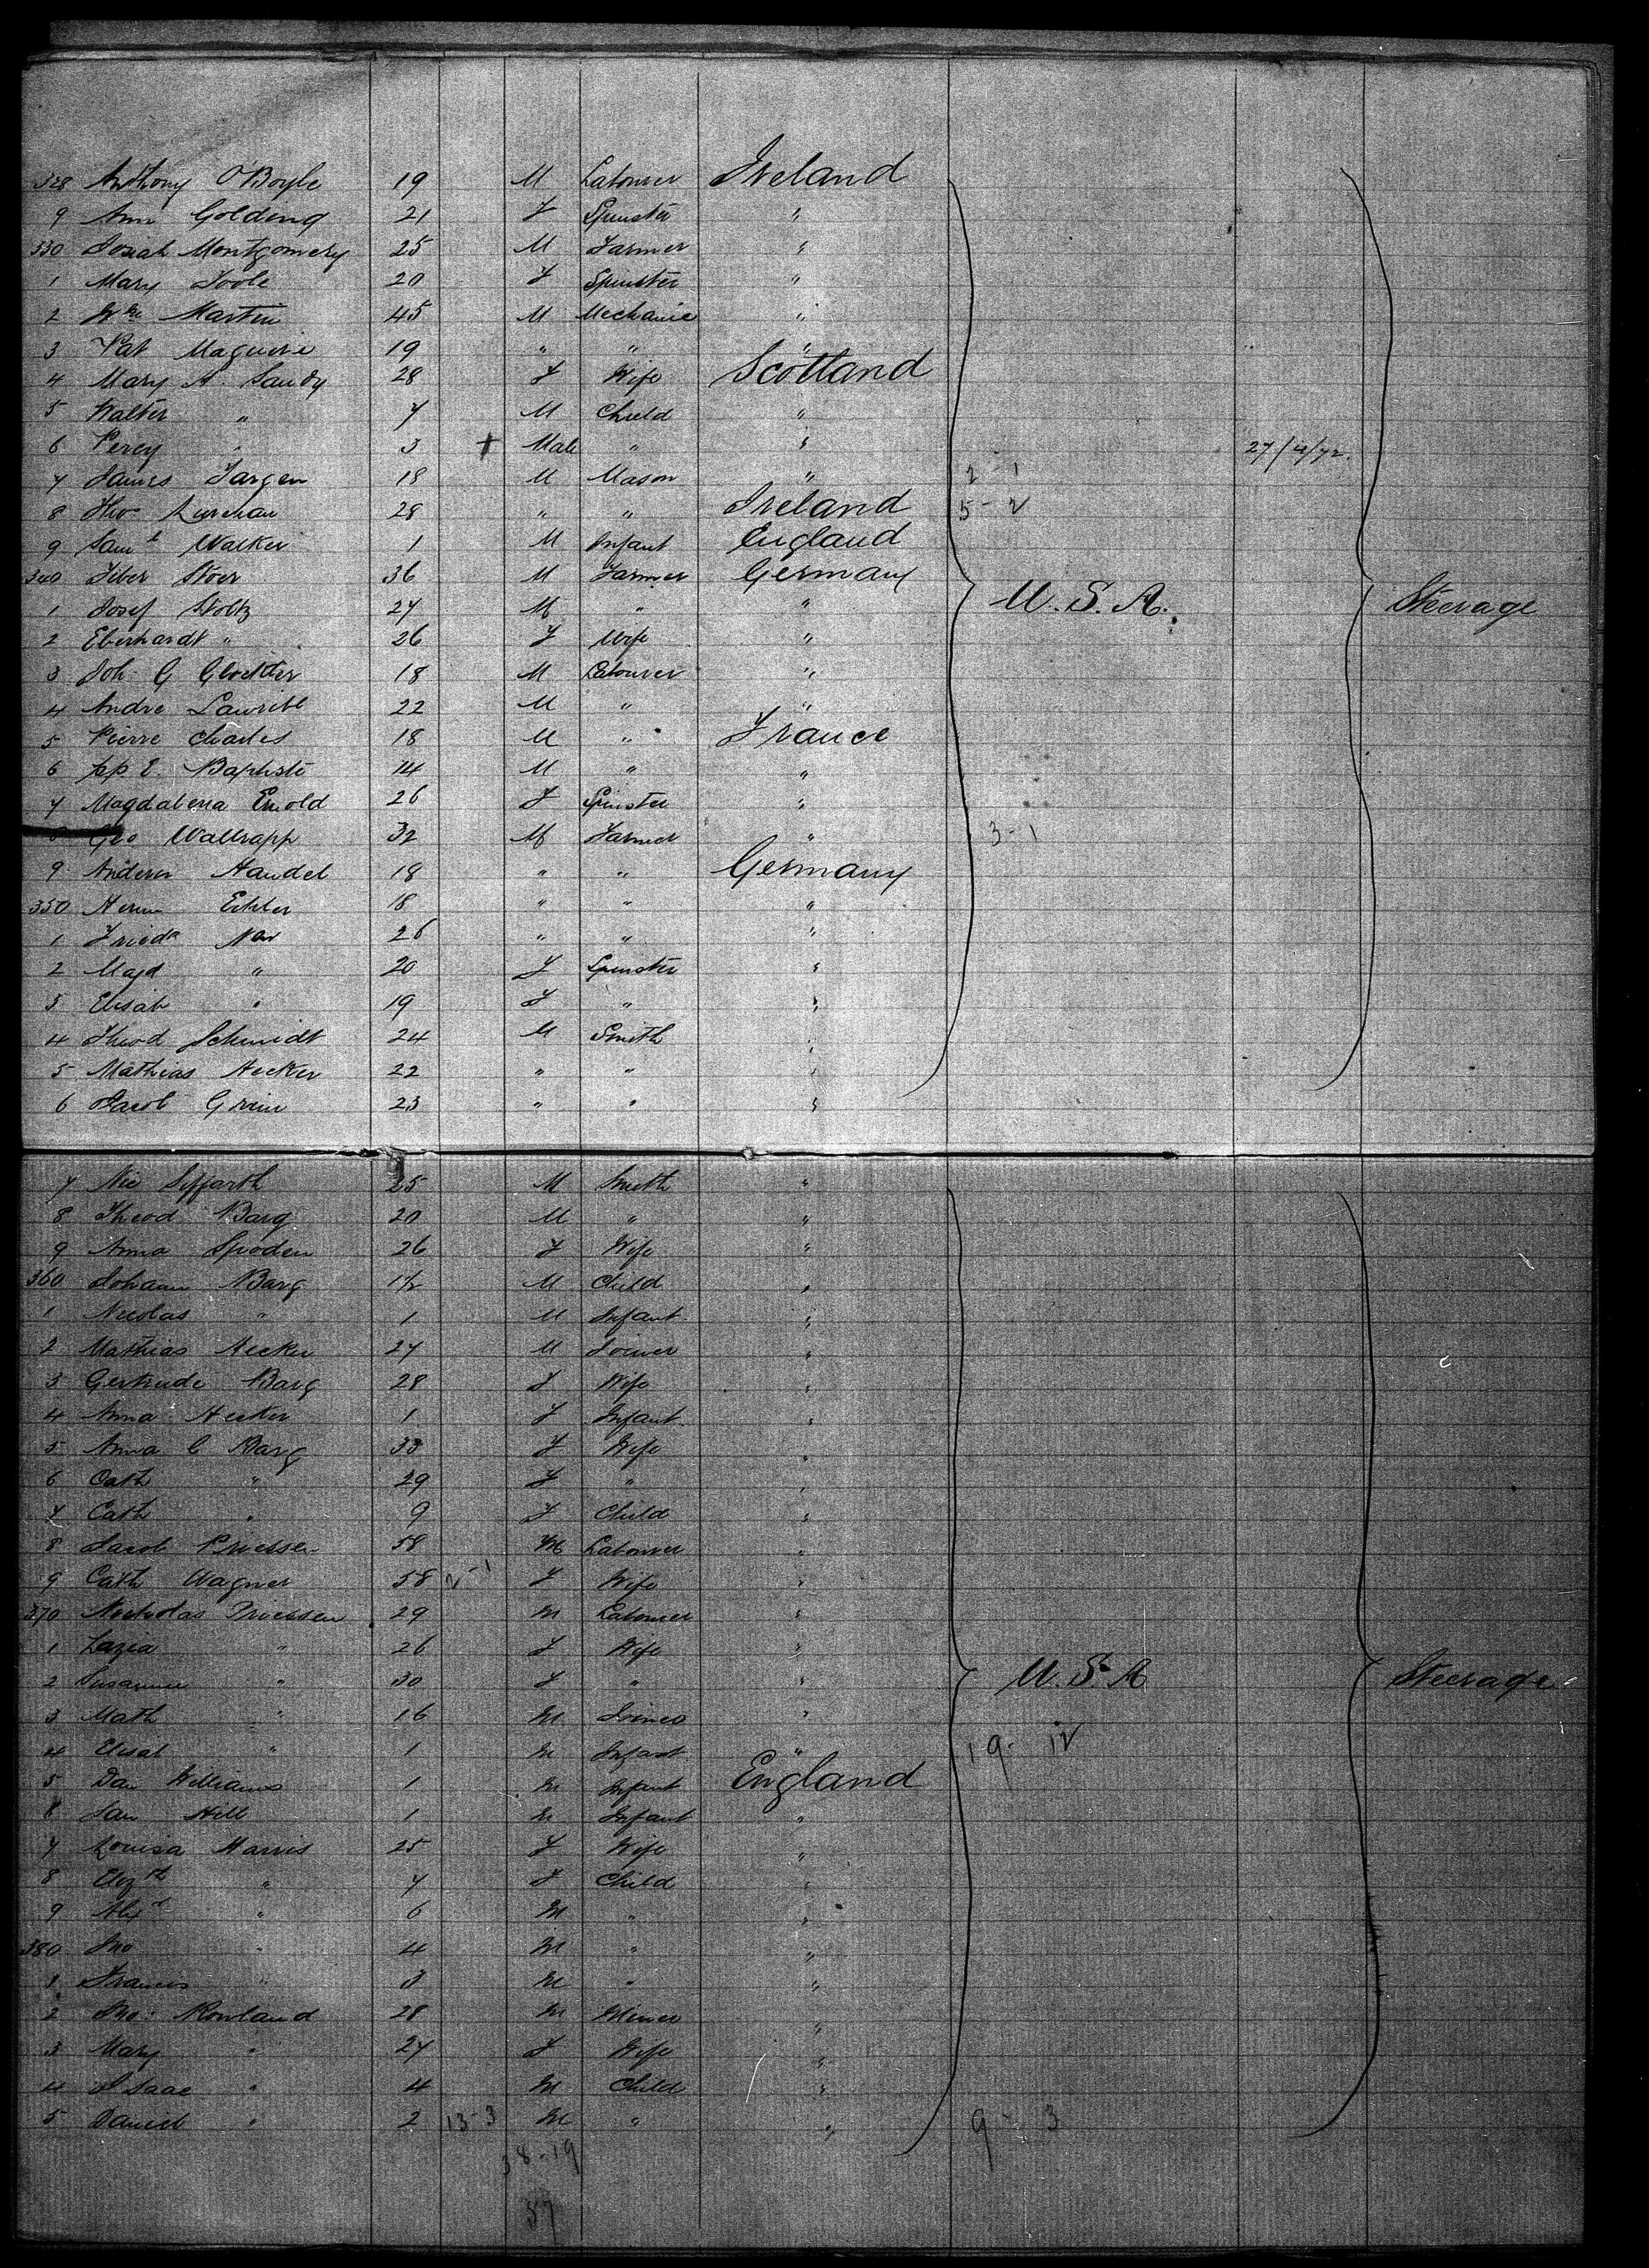 328 Anthony O'Boyle 19 M Labourer Ireland
9 Ann Golding 21 F Spinster "
330 Josiah Montgomery 25 M Farmer "
1 Mary Toole 20 F Spinster "
2 Wm Martin 45 M Mechanic "
3 Pat Maguire 19 " " "
4 Mary A. Sandy 28 F Wife Scotland
5 Walter " 7 M Child "
6 Percy " 3 + Male " " 27/4/72.
7 James 18 M Mason " 2-1
8 Thos 28 " " Ireland 5-2
9 Saml Walker 1 M Infant England
340 36 M Farmer Germany
1 Josef Stoltz 27 M " " U.S.A. Steerage
2 Eberhardt " 26 F Wife "
3 Joh. G 18 M Labourer "
4 Andre 22 M " "
5 Pierre Charles 18 M " France
6 E. Baptiste 14 M " "
7 Magdalena 26 F Spinster "
Geo Wallrapp 32 M Farmer " 3-1
9 Handel 18 " " Germany
350 Herm 18 " " "
1 26 " " "
2 Magd " 20 F Spinster "
3 Elisab " 19 F " "
4 Theod Schmidt 24 M Smith "
5 Mathias Hecker 22 " " "
6 Jacob 23 " " "
7 Nic Siffarth 25 M Smith "
8 Theod Barg 20 M " "
9 Anna Spoden 26 F Wife "
360 Johann Barg M Child "
1 Nicolas " 1 M Infant "
2 Mathias Hecker 27 M Joiner "
3 Gertrude Barg 28 F Wife "
4 Anna Hecker 1 F Infant "
5 Anna C Barg 33 F Wife "
6 Cath " 29 F " "
7 Cath " 9 F Child "
8 Jacob 58 M Labourer "
9 Cath Wagner 58 2-1 F Wife "
370 29 M Labourer "
1 " 26 F Wife "
2 Susanne " 30 F " " U.S.A Steerage
3 Math " 16 M "
4 Elisab " 1 M Infant " 19-12
5 Dan Williams 1 M Infant England
6 Sam Hill 1 M Infant "
7 Louisa Harris 25 F Wife "
8 Elizth " 7 F Child "
9 " 6 M " "
380 Jno " 4 M " "
1 Francis " M " "
2 Jno: Rowland 28 M Miner "
3 Mary " 27 F Wife "
4 Isaac " 4 M Child "
5 Daniel " 2 13-3 M " " 9-3
38-19
57